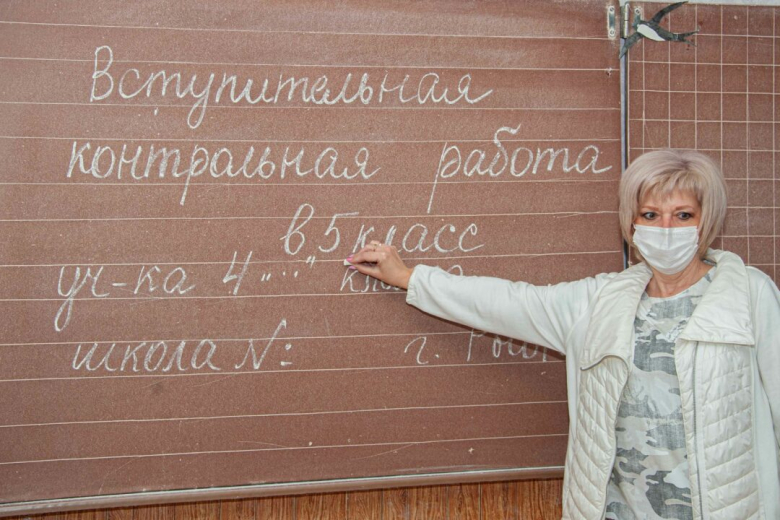 Вступительная
контрольная работа
в 5 класс
уч-ка 4 "..."
школа №: г.